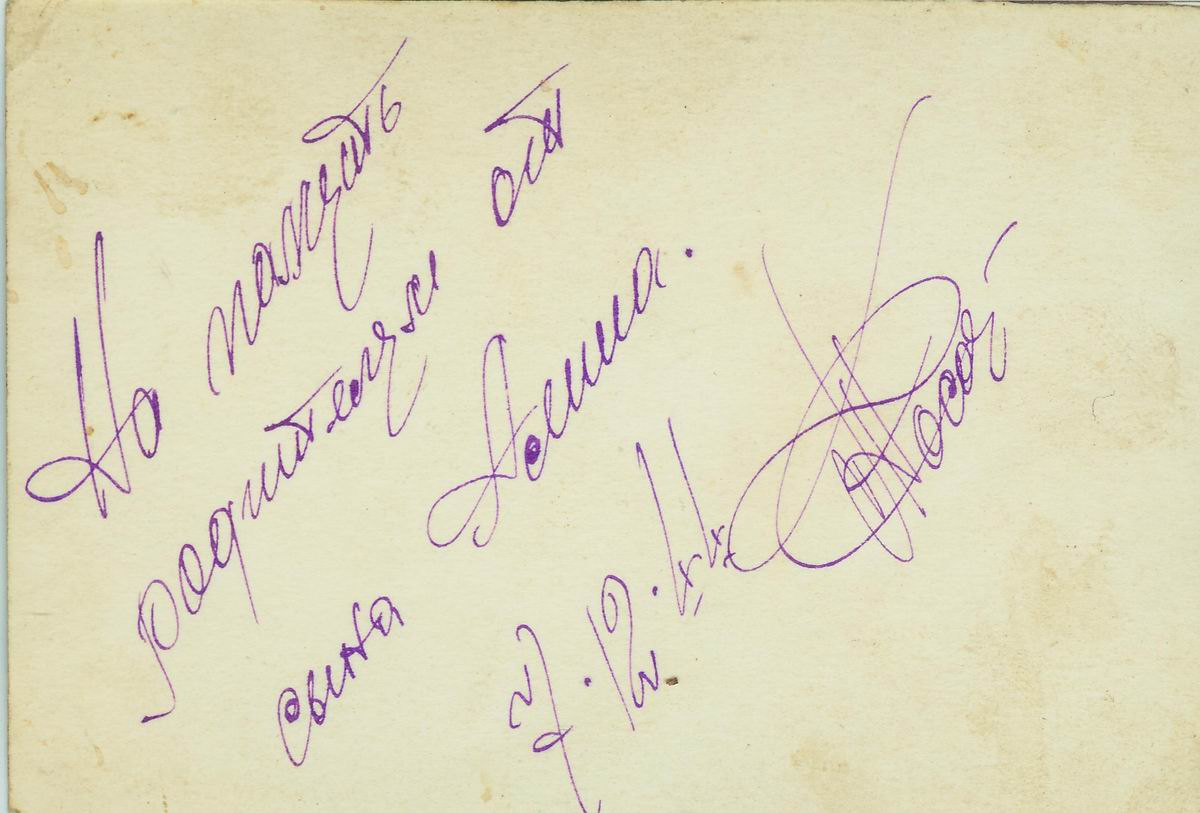 На память
родителям от
сына
7.12.